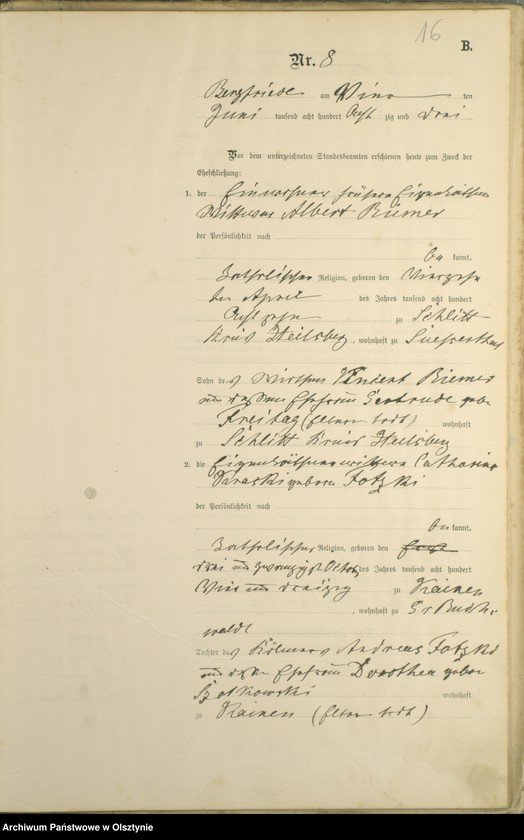 16
B.
Nr. 8
Bergfriede am Vier ten
Juni tausend acht hundert Acht zig und drei
Vor dem unterzeichneten Standesbeamten erschienen heute zum Zweck der
Eheschließung:
1. der Einwohner früherer Eigenkäthner
Wittwer Albert Riemer
der Persönlichkeit nach
be kannt,
katholischer Religion, geboren den Vierzehn
ten April des Jahres tausend acht hundert
Achtzehn zu Schlitt
Kreis Heilsberg, wohnhaft zu
Sohn des Wirthen Vincent Riemer
und dessen Ehefrau Gertrude geb.
Freitag (Eltern todt) wohnhaft
zu Schlitt Kreis Heilsberg
2. die Eigenkäthnerwittwe Catharina
geborne Fotzki
der Persönlichkeit nach
be kannt,
katholischer Religion, geboren den
drei und zwanzigst October des Jahres tausend acht hundert
Vier und dreizig zu Rainen
, wohnhaft zu Gr Buch-
walde
Tochter des Kölmers Andreas Fotzki
und dessen Ehefrau Dorothea geborne
wohnhaft
zu Rainen (Eltern todt)
Archiwum Państwowe w Olsztynie